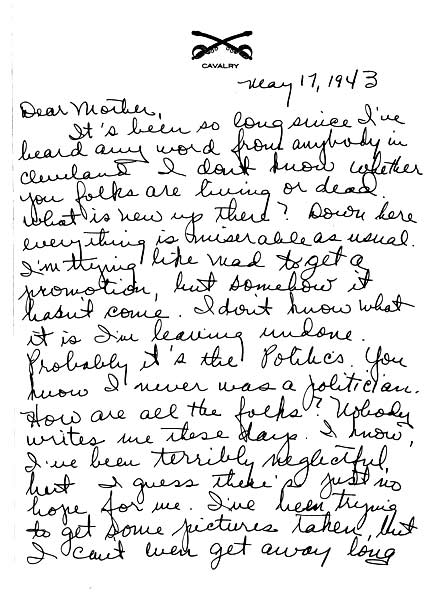 CAVALRY
May 17, 1943
Dear Mother,
It's been so long since I've
heard any word from anybody in
Cleveland I don't know whether
you folks are living or dead.
What is new up there? Down here
everything is miserable as usual.
I'm trying like mad to get a
promotion, but somehow it
hasn't come. I don't know what
it is I'm leaving undone.
Probably it's the Politics. You
know I never was a politician.
How are all the folks? Nobody
writes me these days. I know,
I've been terribly neglectful,
but I guess there's just no
hope for me. I've been trying
to get some pictures taken, but
I can't even get away long